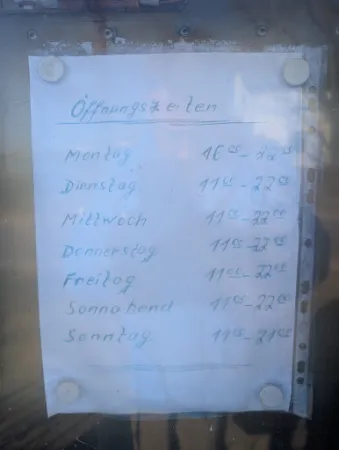 Öffnungszeiten
Montag 16⁰⁰ - 22⁰⁰
Dienstag 11⁰⁰ - 22⁰⁰
Mittwoch 11⁰⁰ - 22⁰⁰
Donnerstag 11⁰⁰ - 22⁰⁰
Freitag 11⁰⁰ - 22⁰⁰
Sonnabend 11⁰⁰ - 22⁰⁰
Sonntag 11⁰⁰ - 21⁰⁰